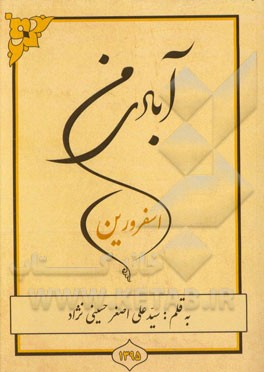 آبادی من
اسفرورین
به قلم : سیّد علی اصغر حسینی نژاد
۱۳۹۵